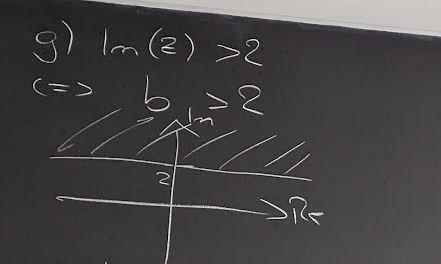 g) Im(z) >2
<=> b >2
Im
2
Re